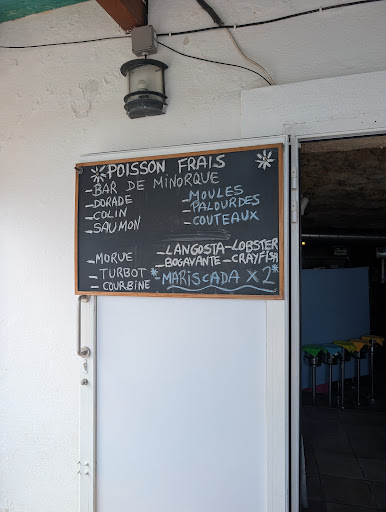 POISSON FRAIS
- BAR DE MINORQUE
- DORADE
- COLIN
- SAUMON
- MOULES
- PALOURDES
- COUTEAUX
- MORUE
- TURBOT
- COURBINE
- LANGOSTA - LOBSTER
- BOGAVANTE - CRAYFISH
*- MARISCADA X 2*